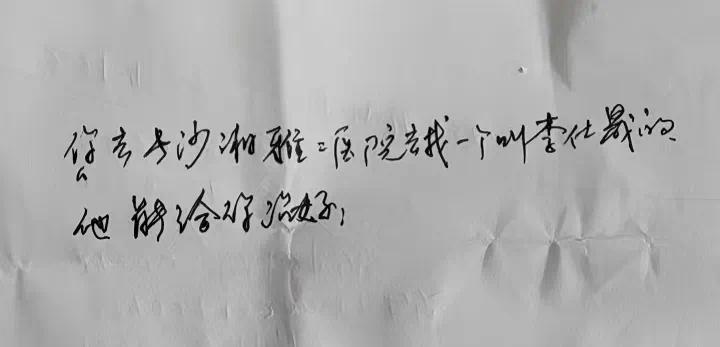 你去长沙湘雅二医院去找一个叫李仕晟的
他能给你治好;